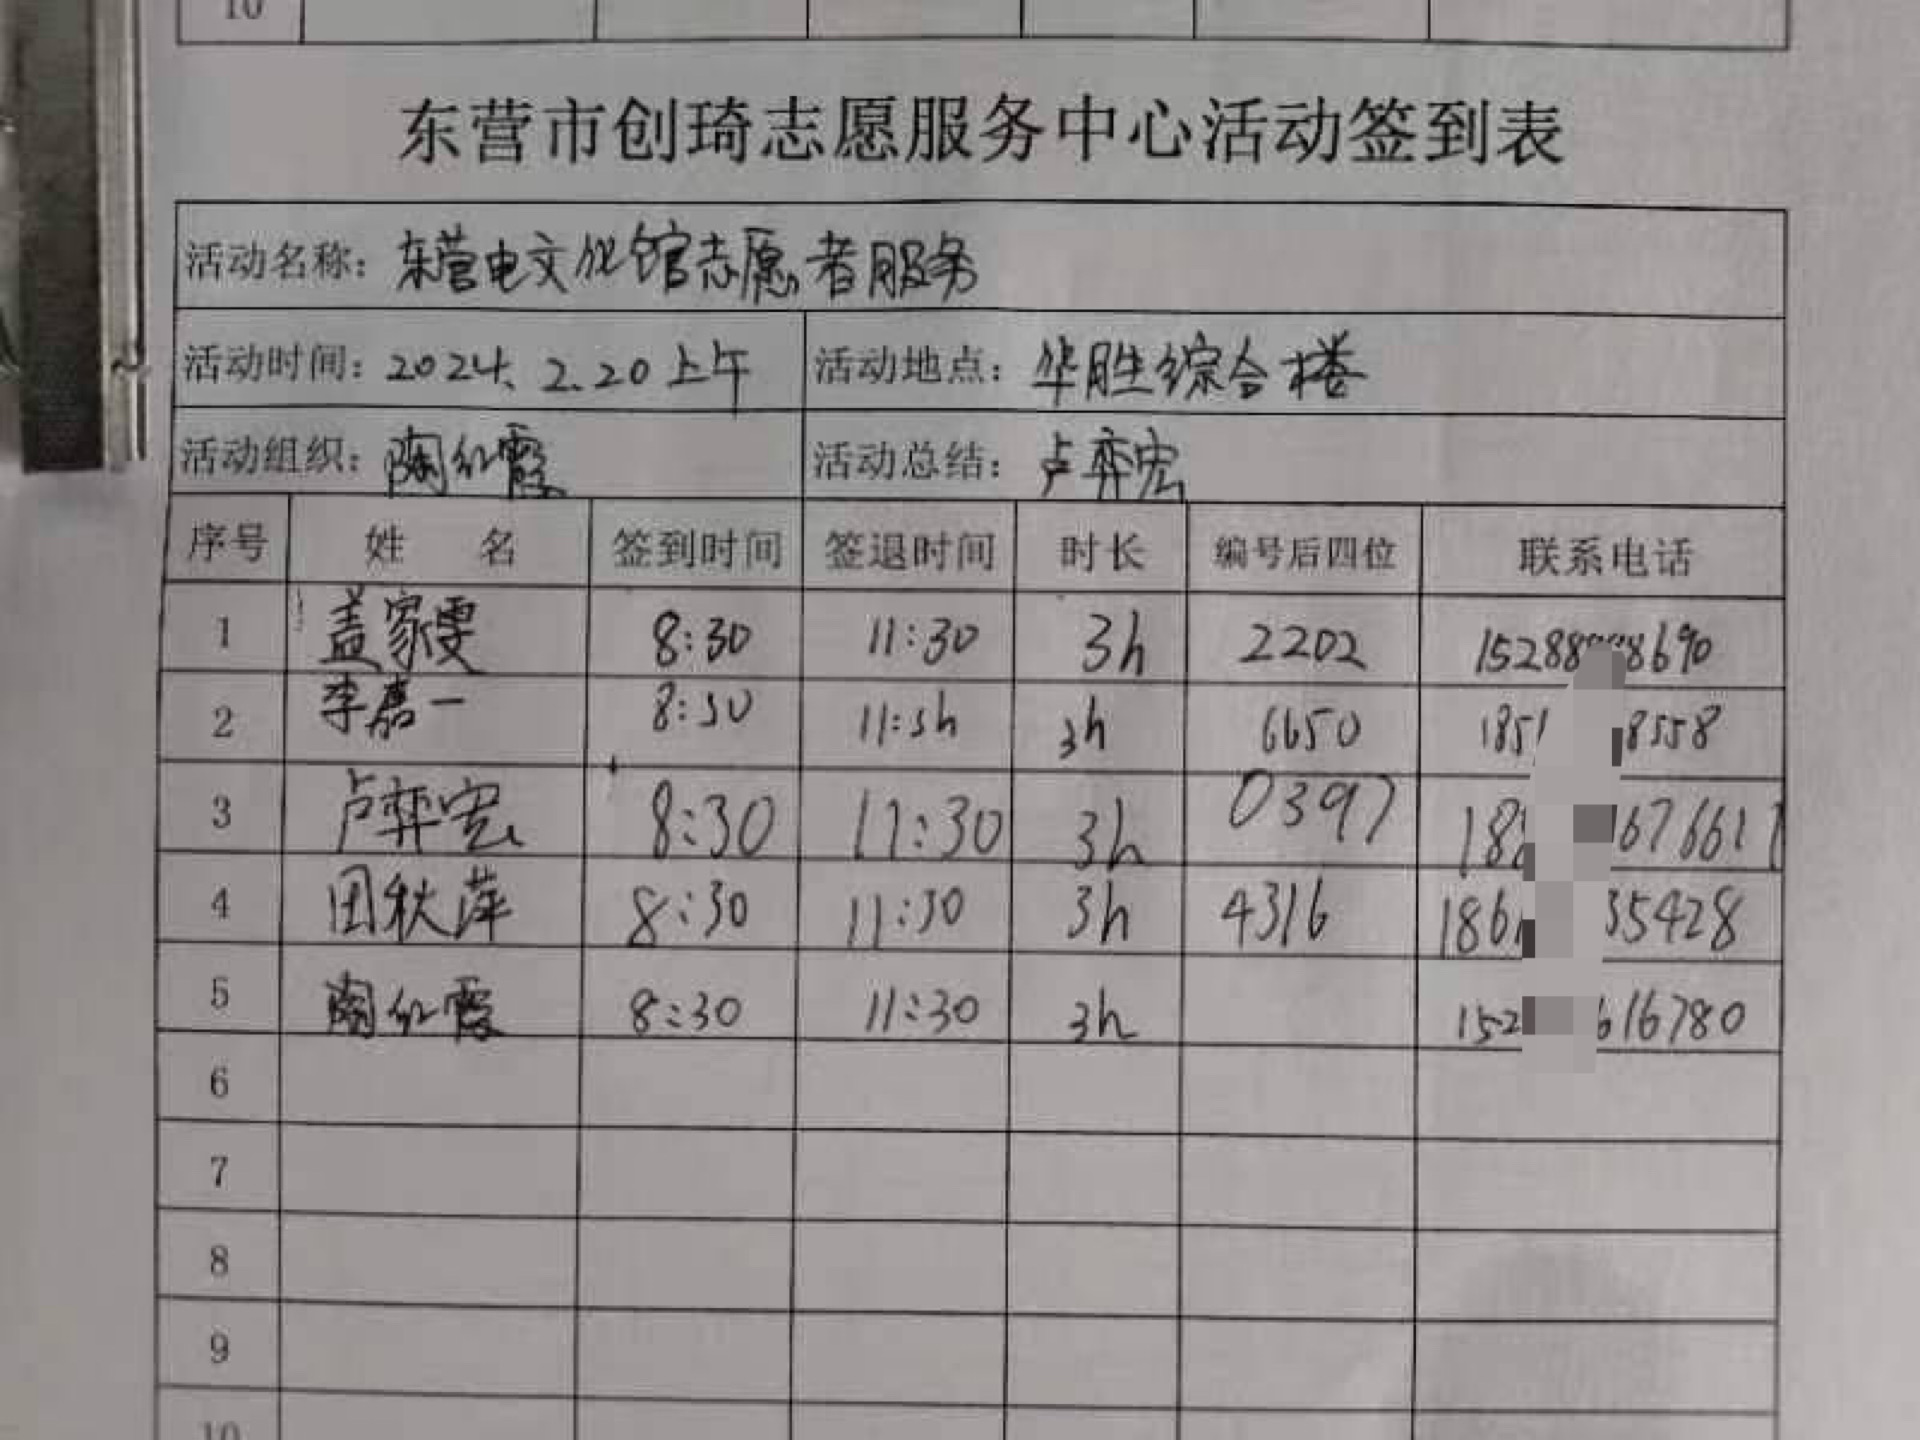 10
东营市创琦志愿服务中心活动签到表
活动名称：东营电文化馆志愿者服务
活动时间：2024.2.20上午 活动地点：华胜综合楼
活动组织：陶红霞 活动总结：卢弈宏
序号 姓名 签到时间 签退时间 时长 编号后四位 联系电话
1 盖家雯 8:30 11:30 3h 2202 15288 8690
2 李嘉一 8:30 11:3h 3h 6650 185 8558
3 卢弈宏 8:30 11:30 3h 0397 188 676611
4 田秋萍 8:30 11:30 3h 4316 186 35428
5 陶红霞 8:30 11:30 3h 152 616780
6
7
8
9
10